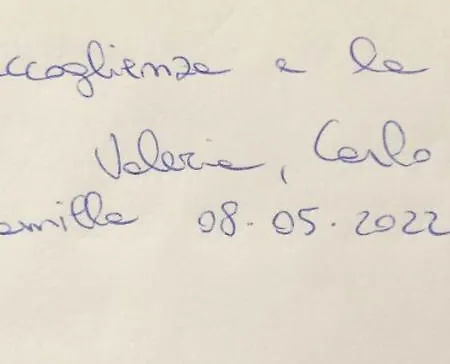 ccoglienza e la
Valeria, Carlo
amilla 08.05.2022